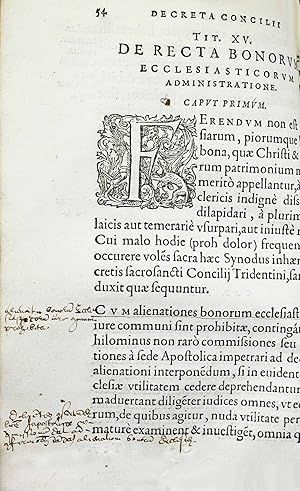 54 DECRETA CONCILII
TIT. XV.
DE RECTA BONORVM
ECCLESIASTICORVM
ADMINISTRATIONE.
CAPVT PRIMVM.
FERENDVM non est
siarum, piorumque
bona, quæ Christi &
rum patrimonium m
meritò appellantur, à
clericis indignè diss
dilapidari, à plurim
laicis aut temerariè vsurpari, aut iniustè r
Cui malo hodie (proh dolor) frequen
occurere volés sacra hæc Synodus inhær
cretis sacrosancti Concilij Tridentini, san
duxit quæ sequuntur.
CVM alienationes bonorum ecclesiast
iure communi sint prohibitæ, contingát
hilominus non rarò commissiones seu
tiones à sede Apostolica impetrari ad dec
alienationi interponédum, si in euident
clesiæ vtilitatem cedere deprehendantur
maduertant diligéter iudices omnes, vt ec
rum, de quibus agitur, nuda vtilitate perm
maturè examinent & inuestigét, omnia q